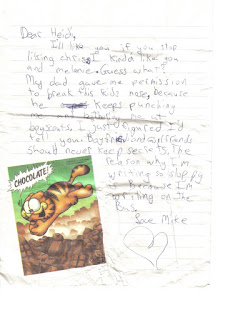 Dear Heidi,
I'll like you if you stop
liking chris. I kinda like you
and melanie. Guess what?
My dad gave me permission
to break this kids nose, because
he keeps punching
me and at
boyscouts. I just figured I'd
tell you. Boyfriend and Girlfriends
should never keep secrets. The
reason why I'm
writing so sloppy
is because I'm
writing on the
Bus.
Love Mike
CHOCOLATE!